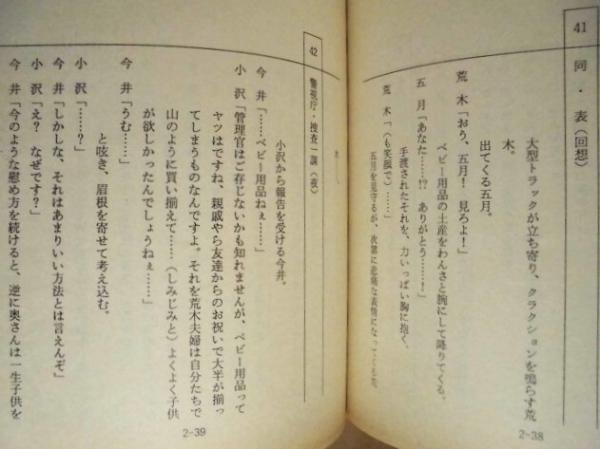 41 同・表（回想）
大型トラックが立ち寄り、クラクションを鳴らす荒
木。
出てくる五月。
荒木「おう、五月！ 見ろよ！」
ベビー用品の土産をわんさと胸にして降りてくる。
五月「あなた……!? ありがとう……！」
手渡されたそれを、力いっぱい胸に抱く。
荒木「（も笑顔で）……」
五月を見守るが、次第に悲痛な表情になってくる荒
木。
2-38
42 警視庁・捜査一課（夜）
小沢から報告を受ける今井。
今井「……ベビー用品ねぇ……」
小沢「管理官はご存じないかも知れませんが、ベビー用品って
ヤツはですね、親戚やら友達からのお祝いで大半が揃っ
てしまうものなんですよ。それを荒木夫婦は自分たちで
山のように買い揃えて……（しみじみと）よくよく子供
が欲しかったんでしょうねぇ……」
今井「うむ……」
と呟き、眉根を寄せて考え込む。
小沢「……？」
今井「しかしな、それはあまりいい方法とは言えんぞ」
小沢「え？ なぜです？」
今井「今のような慰め方を続けると、逆に奥さんは一生子供を
2-39